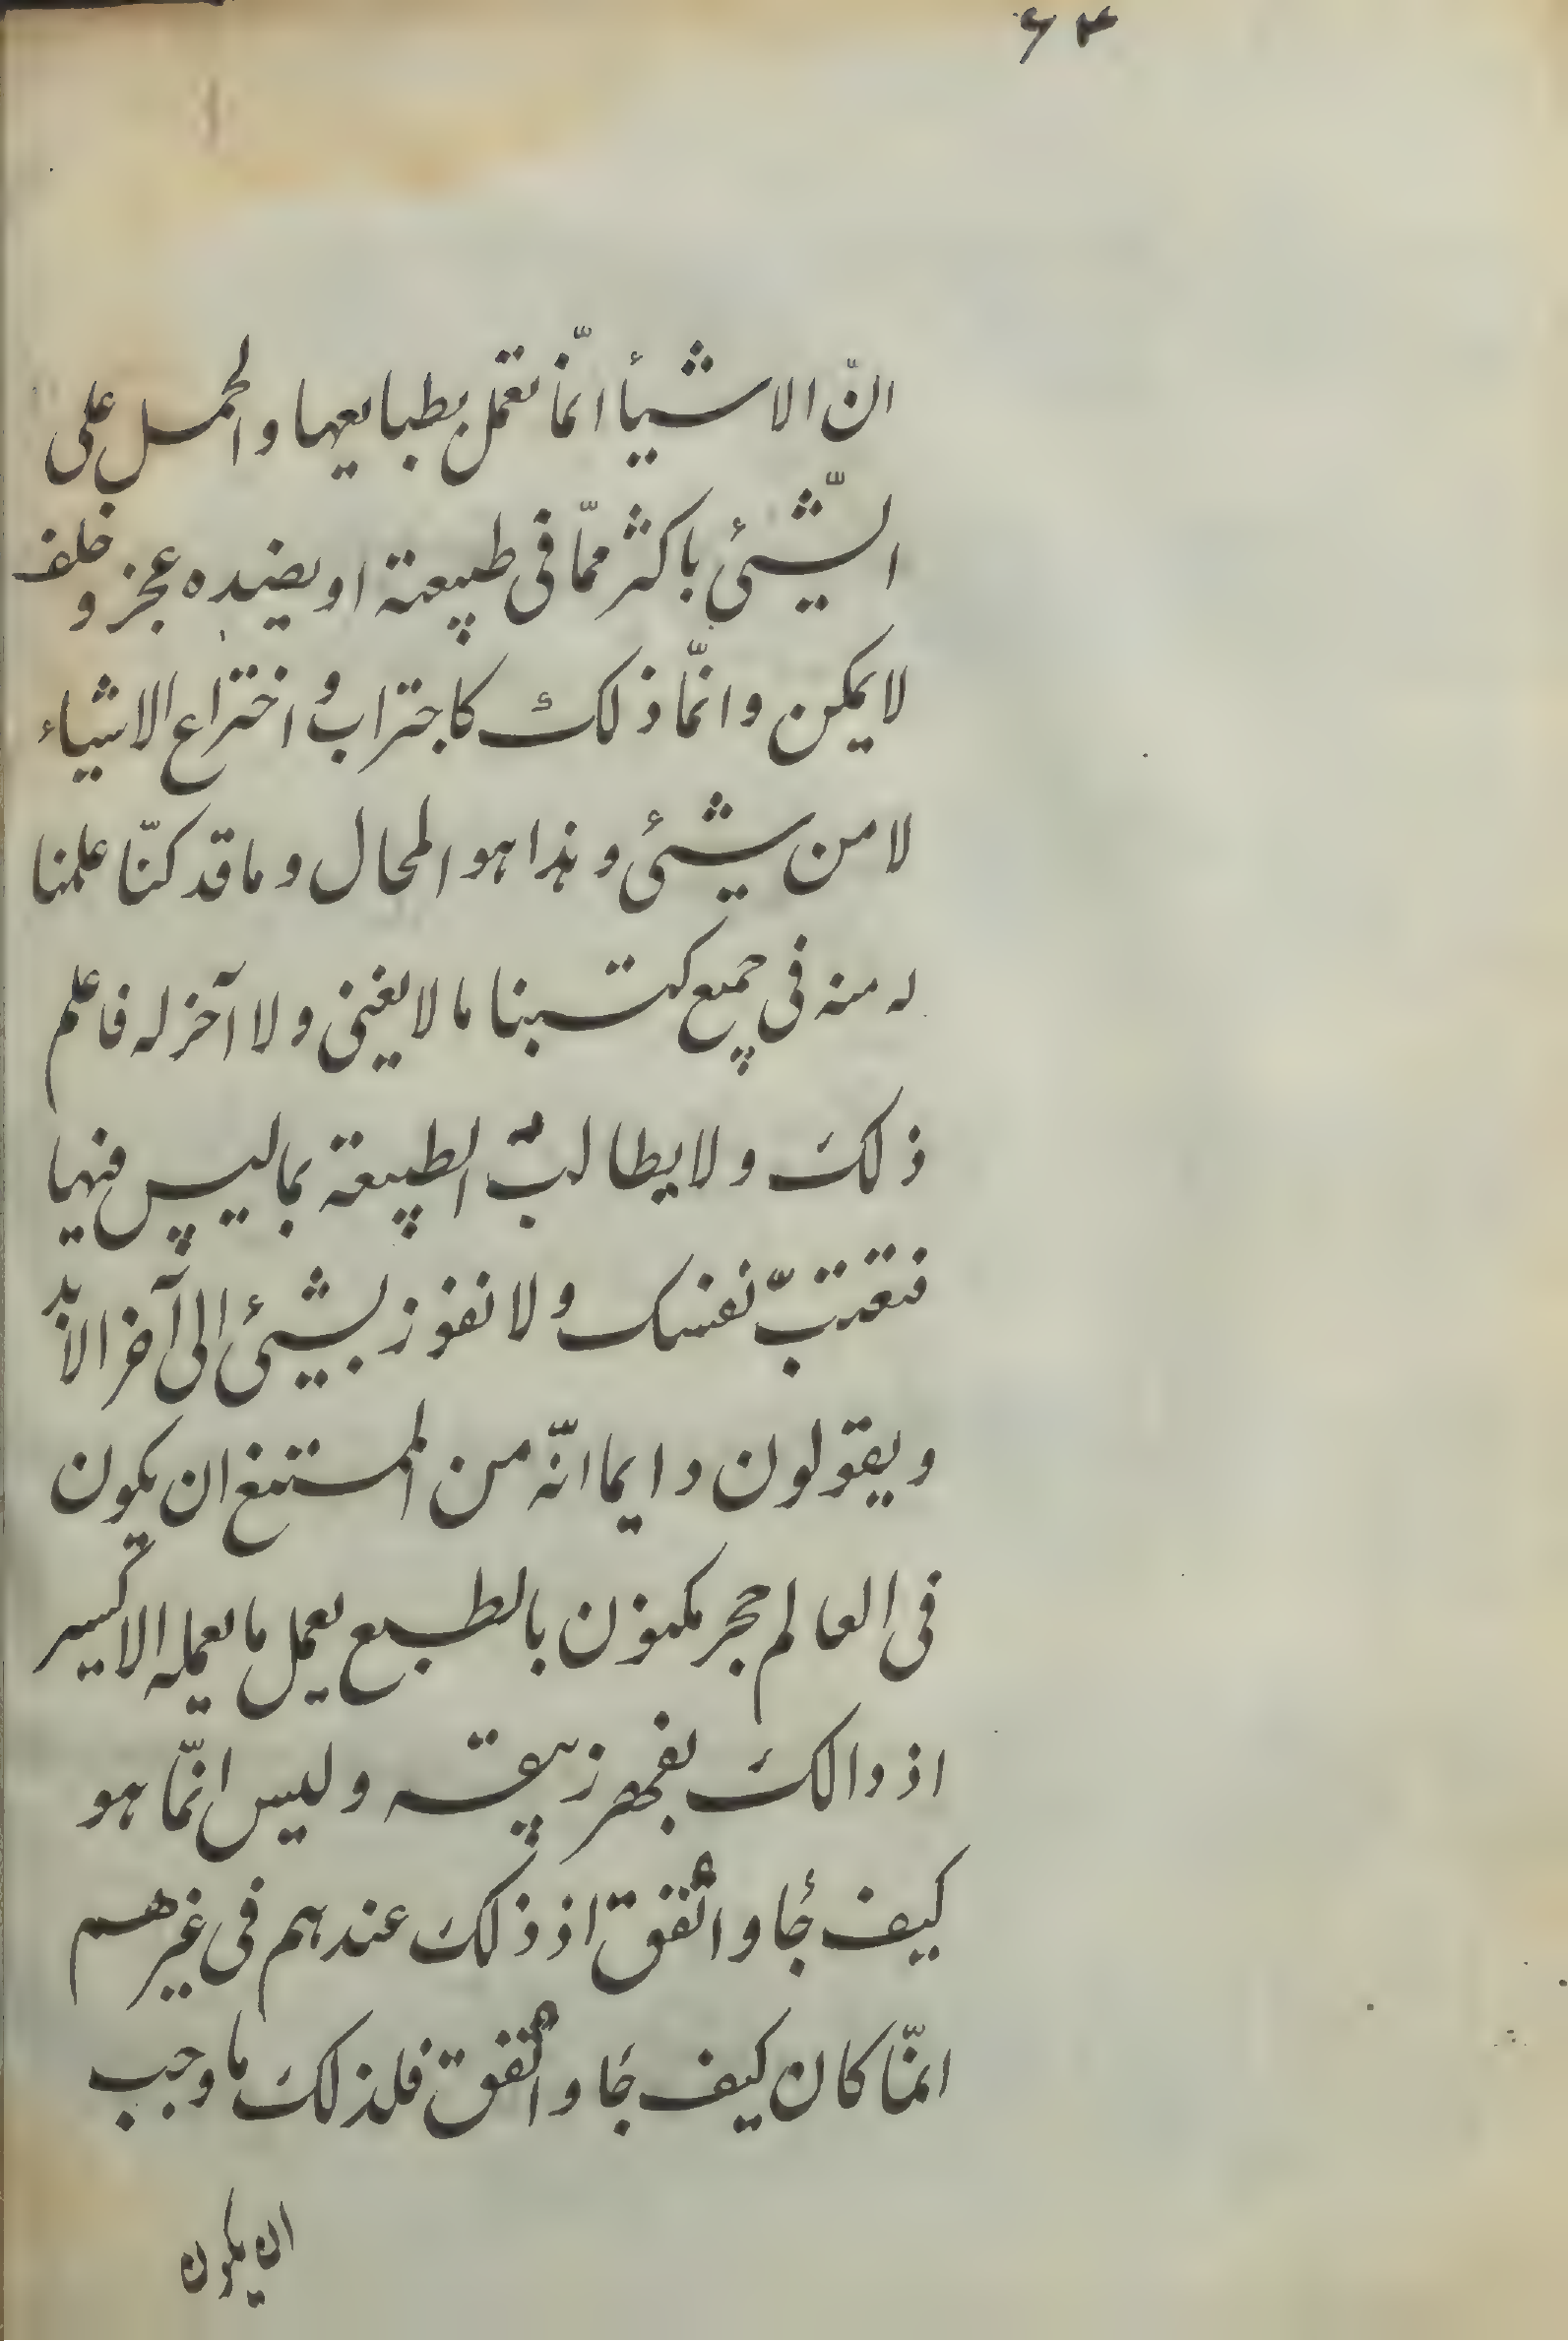 ۶۴
انّ الاشیأ انّما تعمل بطبایعها والحمل علی
الشّیئ باکثر ممّا فی طبیعة او بضده عجز و خلف
لا یمکن وانّما ذلک کاجتراب و اختراع الاشیاء
لا من شیئ و هذا هو المحال و ما قد کنّا علمنا
له منه فی جمیع کتبنا ما لا یغنی و لا آخر له فاعلم
ذلک و لا یطالبّ الطبیعة بما لیس فیها
فتعتبّ نفسک و لا تفوز بشیئ الی آخر الابد
و یقولون دایما انّه من الممتنع ان یکون
فی العالم حجر مکنون بالطبع یعمل ما یعمله الاکسیر
اذ دالک زیبقه ولیس انّما هو
کیف جأ و اتّفق اذ ذلک عندهم فی غیرهم
انمّا کان کیف جَا و اتّفق فلذلک ما وجب
ان یکون